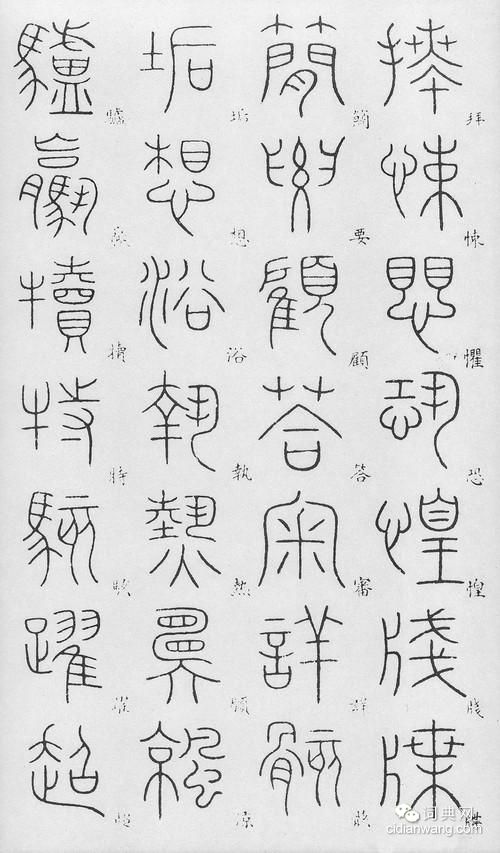 拜悚懼恐惶牋牒
簡要顧答審詳骸
垢想浴執熱願涼
驢騾犢特駭躍超
词典网
cidianwang.com